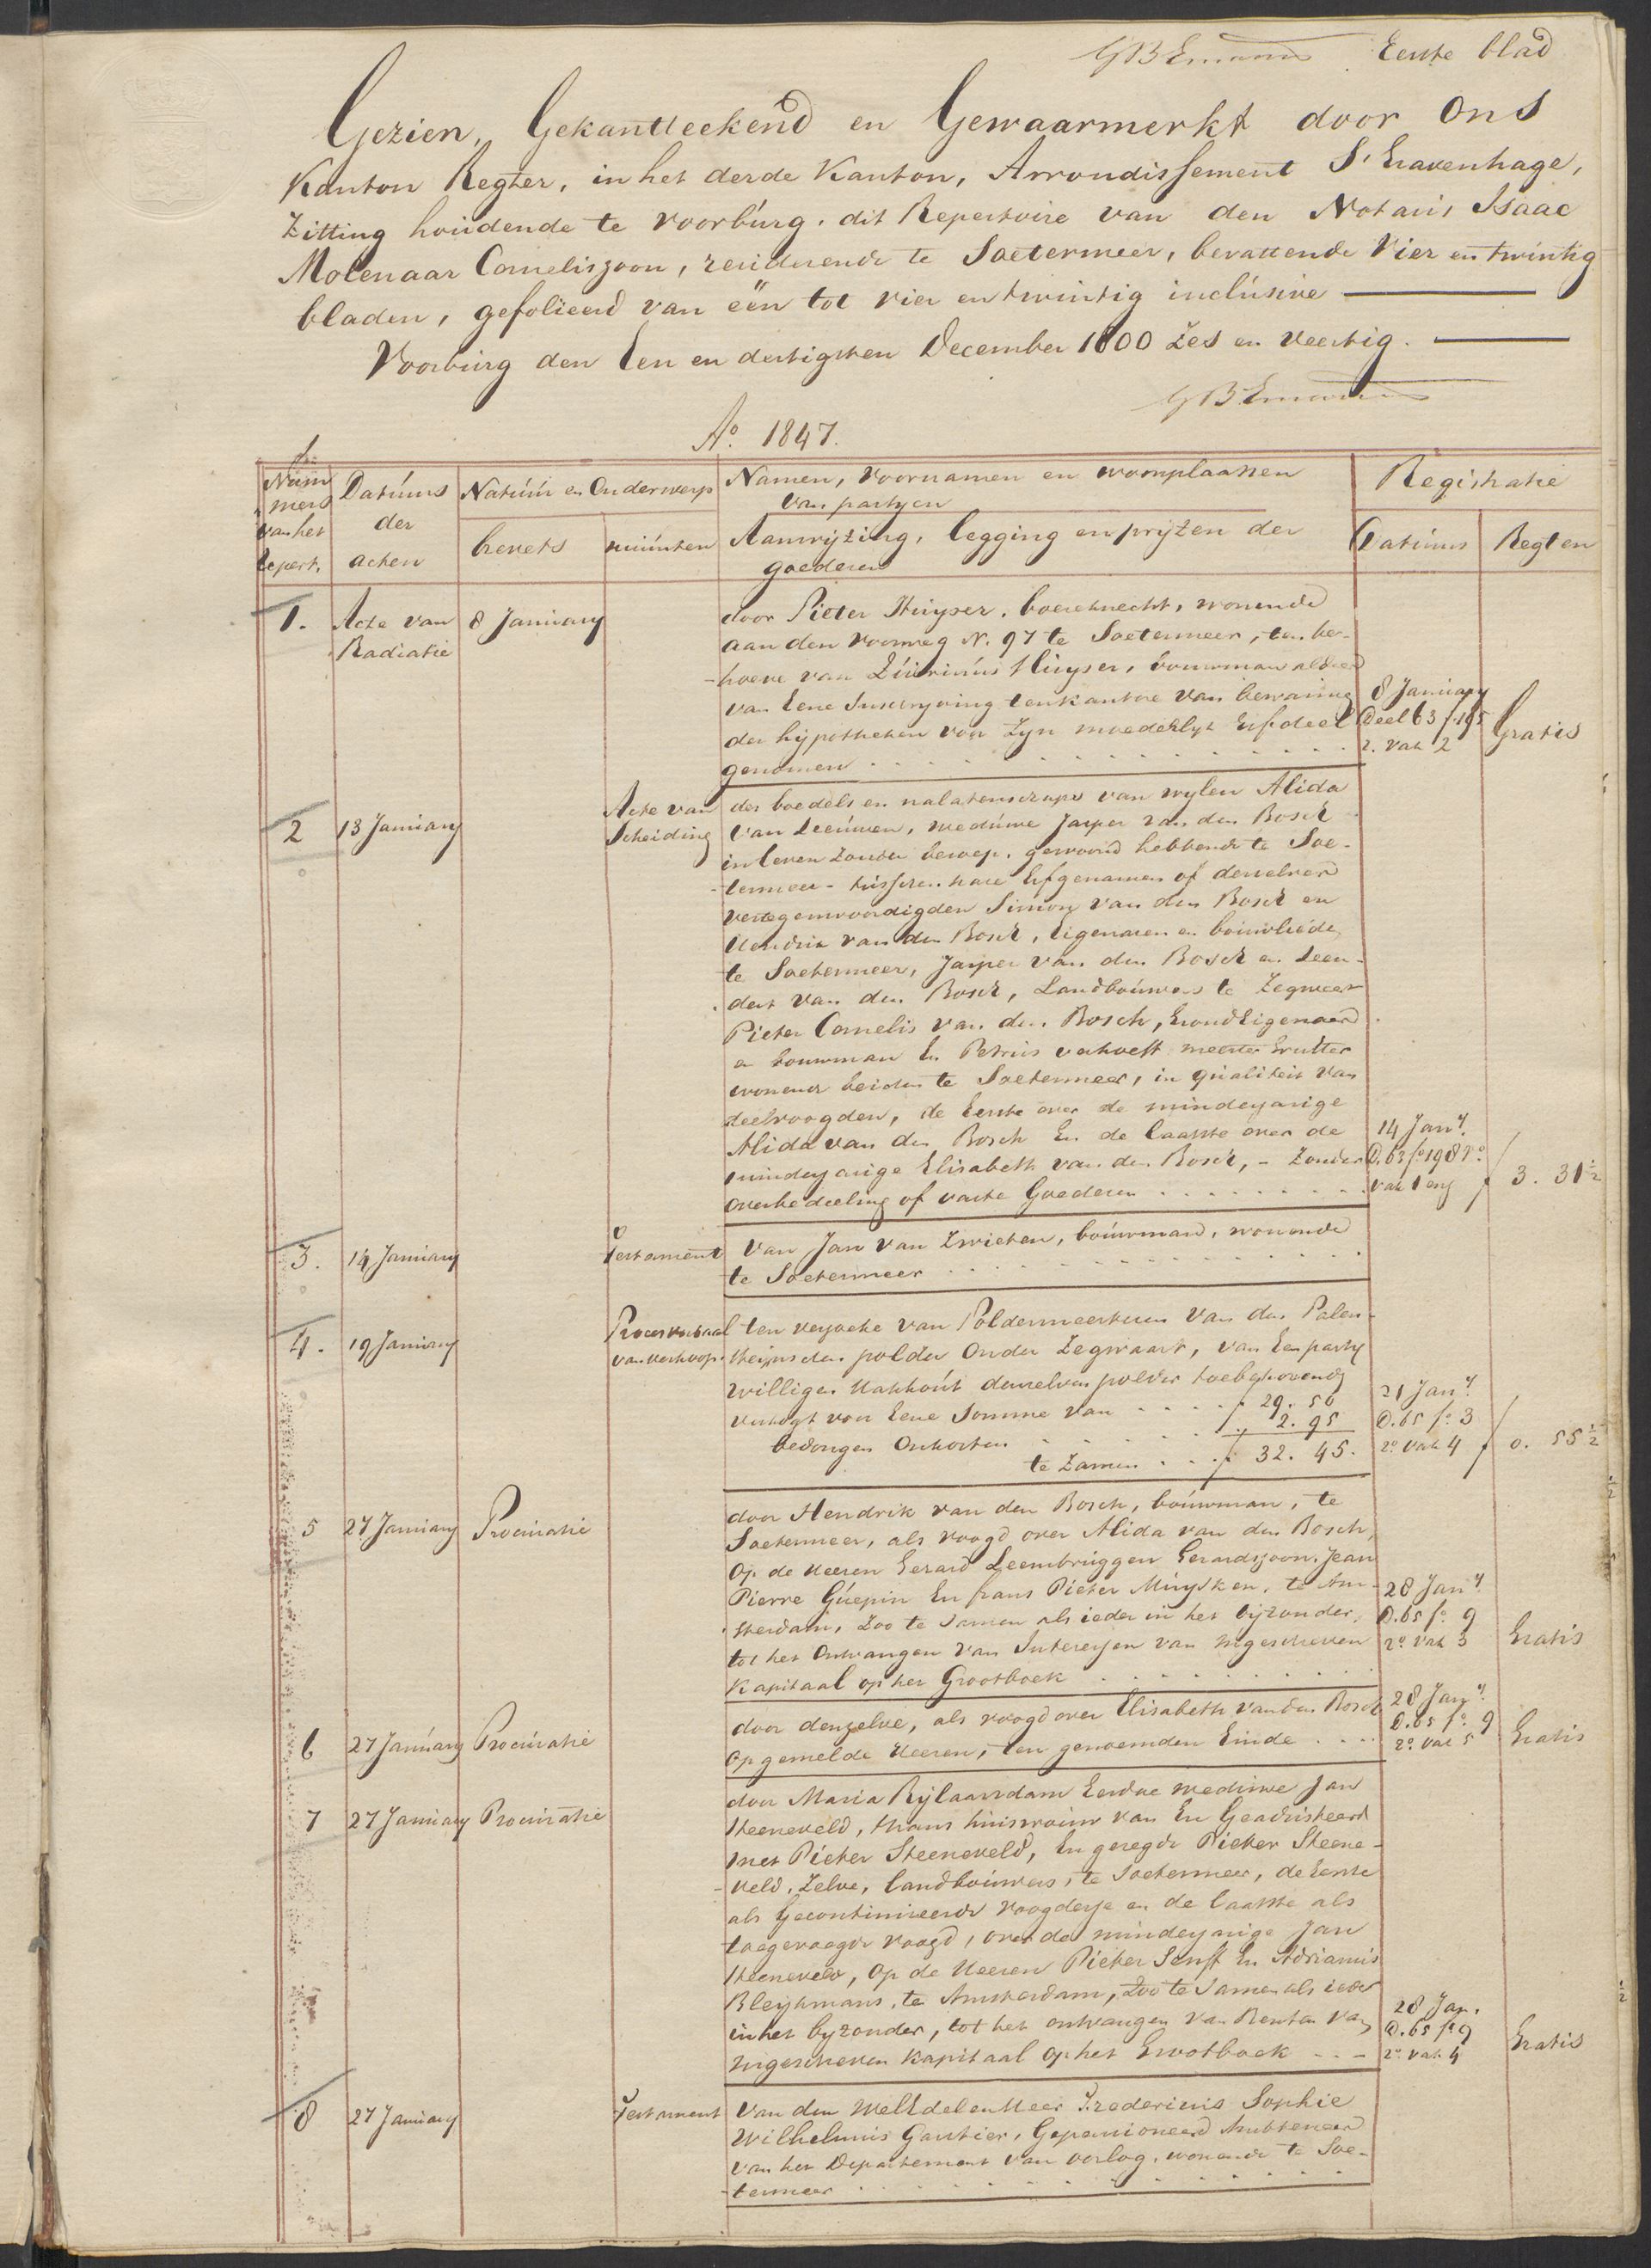 GB Emants Eerste blad
Gezien, Gekantteekend en Gewaarmerkt door Ons
Kanton Regter, in het derde Kanton, Arrondissement S'Gravenhage,
Zitting houdende te Voorburg, dit Repertoire van den Notaris Isaac
Molenaar Corneliszoon, resideerende te Soetermeer, bevattende Vier en twintig
bladen, gefolieerd van één tot vier en twintig inclusive
Voorburg den Een en dertigsten December 1800 Zes en Veertig.
GB Emants
Ao. 1847.
Nummers van het Repert.
Datums der acten
Natuur en Onderwerp
brevets
minuten
Namen, Voornamen en woonplaatsen
van partyen
Aanwyzing, legging en pryzen der
goederen
Registratie
Datums
Regten
1. Acte van Radiatie 8 January
door Pieter Huyser, boereknecht, wonende
aan den Voorweg N. 97 te Soetermeer, ten be-
-hoeve van Quirinus Huyser, bouwman aldaar
van Eene Inschryving ten kantore van bewaring
der hypotheken voor Zyn moederlyk Erfdeel
genomen
8 January
Deel 63 f 195
r. vak 2
Gratis
2 13 January Acte van Scheiding
des boedels en nalatenschaps van wylen Alida
Van Leeuwen, weduwe Jasper van den Bosch
in leven Zonder beroep, gewoond hebbende te Soe-
-termeer - tusschen hare Erfgenamen of derzelver
vertegenwoordigden Simon van den Bosch en
Hendrik van den Bosch, Eigenaren en bouwlieden
te Soetermeer, Jasper van den Bosch en Leen-
dert van den Bosch, Landbouwers te Zegwaart
Pieter Cornelis van den Bosch, GrondEigenaar
en bouwman En Petrus verhoeff meester Grutter
wonende beiden te Soetermeer, in qualiteit van
deelvoogden, de Eerste over de minderjarige
Alida van den Bosch En de laatste over de
minderjarige Elisabeth van den Bosch, - Zonder
overbedeeling of vaste Goederen
14 Jany.
D. 63 fo 198 Vo
vak 1 env
f 3. 31½
3. 14 January Testament
Van Jan van Zwieten, bouwman, wonende
te Soetermeer
4. 19 January Proces verbaal van verkoop.
ten verzoeke van Poldermeesteren van den Palen-
steijnschen polder Onder Zegwaart, van Een party
Willigen Hakhout denzelven polder toebehoorende
Verkogt voor Eene Somme van f 29. 50
bedongen Onkosten f 2. 95
te Zamen f 32. 45.
21 Jany.
D. 65 fo. 3
ro vak 4
f 0. 55½
5 27 January Procuratie
door Hendrik van den Bosch, bouwman, te
Soetermeer, als voogd over Alida van den Bosch,
Op de Heeren Gerard Leembruggen Gerardszoon, Jean
Pierre Guepin En frans Pieter Muysken, te Am-
sterdam, Zoo te Samen als ieder in het byzonder,
tot het Ontvangen van Interessen van Ingeschreven
Kapitaal op het Grootboek
28 Jany.
D. 65 fo. 9
ro. vak 3
Gratis
6 27 January Procuratie
door denzelve, als voogd over Elisabeth van den Bosch
op gemelde Heeren, ten genoemden Einde
28 Jany.
D. 65 fo. 9
ro. vak 5
Gratis
7 27 January Procuratie
door Maria Rylaarsdam Eerder weduwe Jan
Steeneveld, thans huisvrouw van En Geadsisteerd
met Pieter Steeneveld, En gezegde Pieter Steene-
-veld, Zelve, landbouwers, te Soetermeer, de Eerste
als Gecontinueerde voogdesse en de laatste als
toegevoegde voogd, over de minderjarige Jan
Steeneveld, Op de Heeren Pieter Senff En Adrianus
Bleykmans, te Amsterdam, Zoo te Samen als ieder
in het byzonder, tot het ontvangen van Renten van
ingeschreven Kapitaal Op het Grootboek
28 Jan.
D. 65 fo 9
ro. vak 4
Gratis
8 27 January Testament
Van den WelEdelen Heer Fredericus Sophie
Wilhelmus Gautier, Gepensioneerd Ambtenaar
van het Departement van oorlog, wonende te Soe-
-termeer